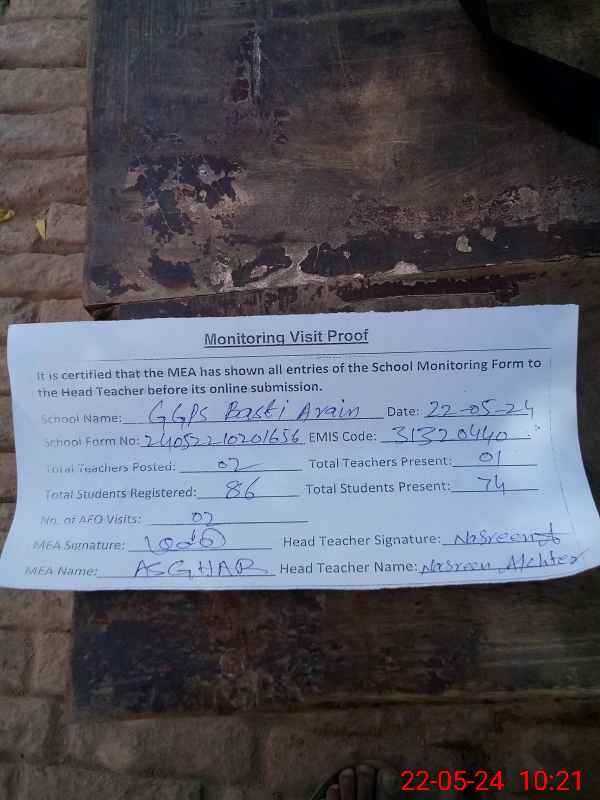 Monitoring Visit Proof
It is certified that the MEA has shown all entries of the School Monitoring Form to
the Head Teacher before its online submission.
School Name: GGPS Basti Arain Date: 22-05-24
School Form No: 24052210201656 EMIS Code: 31320440
Total Teachers Posted: 02 Total Teachers Present: 01
Total Students Registered: 86 Total Students Present: 74
No. of AEO Visits: 02
MEA Signature: Head Teacher Signature: Nasreen
MEA Name: ASGHAR Head Teacher Name: Nasreen Akhter
22-05-24 10:21